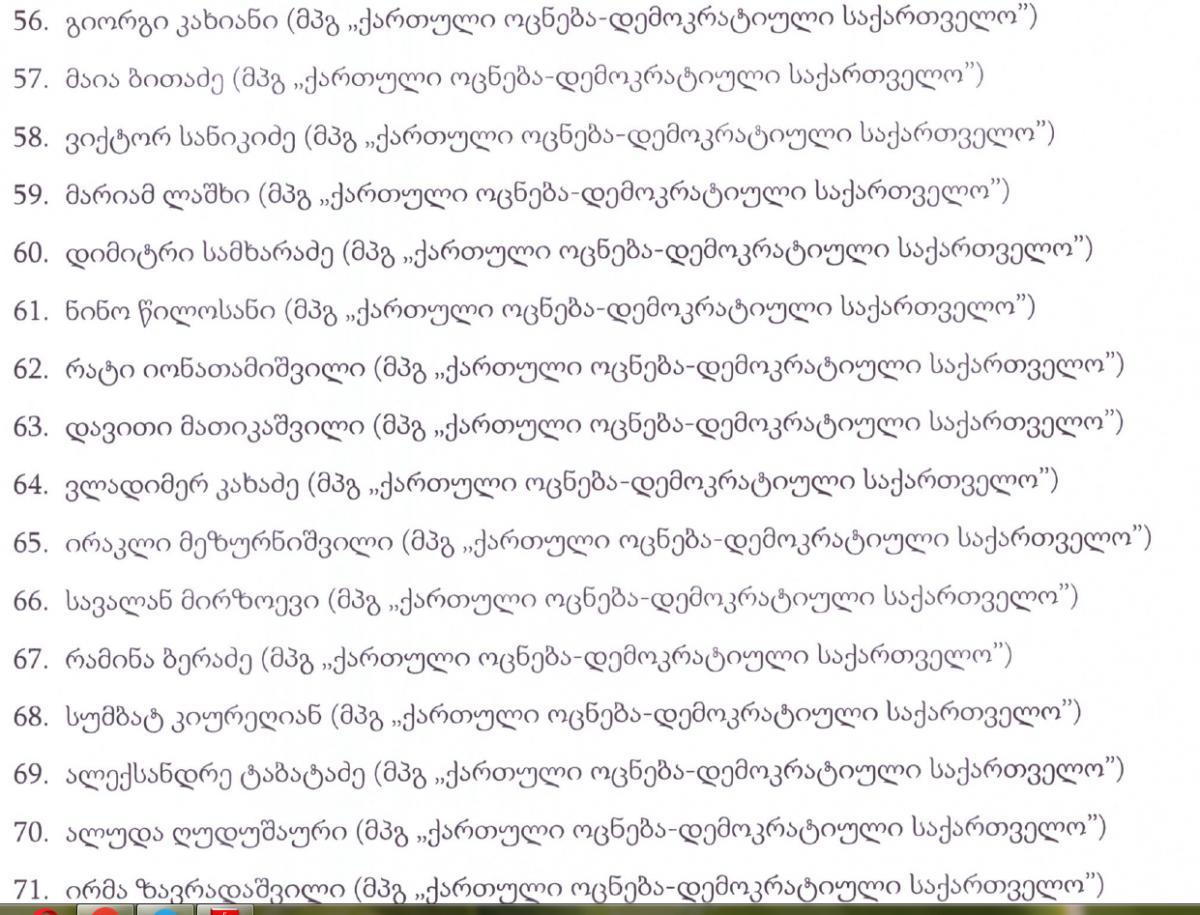 56. გიორგი კახიანი (მპგ „ქართული ოცნება-დემოკრატიული საქართველო”)
57. მაია ბითაძე (მპგ „ქართული ოცნება-დემოკრატიული საქართველო”)
58. ვიქტორ სანიკიძე (მპგ „ქართული ოცნება-დემოკრატიული საქართველო”)
59. მარიამ ლაშხი (მპგ „ქართული ოცნება-დემოკრატიული საქართველო”)
60. დიმიტრი სამხარაძე (მპგ „ქართული ოცნება-დემოკრატიული საქართველო”)
61. ნინო წილოსანი (მპგ „ქართული ოცნება-დემოკრატიული საქართველო”)
62. რატი იონათამიშვილი (მპგ „ქართული ოცნება-დემოკრატიული საქართველო”)
63. დავითი მათიკაშვილი (მპგ „ქართული ოცნება-დემოკრატიული საქართველო”)
64. ვლადიმერ კახაძე (მპგ „ქართული ოცნება-დემოკრატიული საქართველო”)
65. ირაკლი მეზურნიშვილი (მპგ „ქართული ოცნება-დემოკრატიული საქართველო”)
66. სავალან მირზოევი (მპგ „ქართული ოცნება-დემოკრატიული საქართველო”)
67. რამინა ბერაძე (მპგ „ქართული ოცნება-დემოკრატიული საქართველო”)
68. სუმბატ კიურეღიან (მპგ „ქართული ოცნება-დემოკრატიული საქართველო”)
69. ალექსანდრე ტაბატაძე (მპგ „ქართული ოცნება-დემოკრატიული საქართველო”)
70. ალუდა ღუდუშაური (მპგ „ქართული ოცნება-დემოკრატიული საქართველო”)
71. ირმა ზავრადაშვილი (მპგ „ქართული ოცნება-დემოკრატიული საქართველო”)